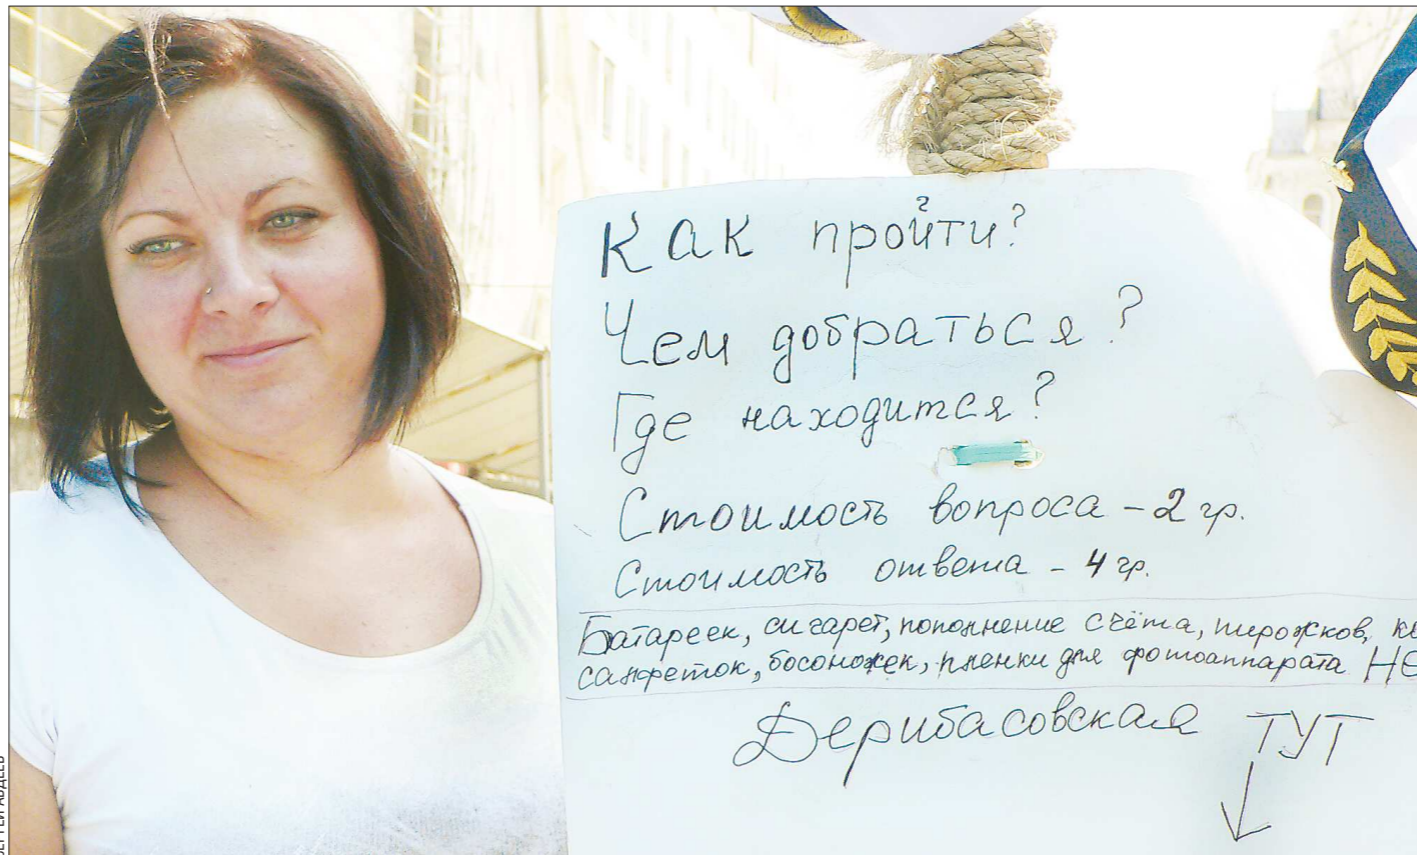 Как пройти?
Чем добраться?
Где находится?
Стоимость вопроса - 2 гр.
Стоимость ответа - 4 гр.
Батареек, сигарет, пополнение счёта, пирожков,
салфеток, босоножек, пленки для фотоаппарата
Дерибасовская ТУТ
АВДЕЕВ